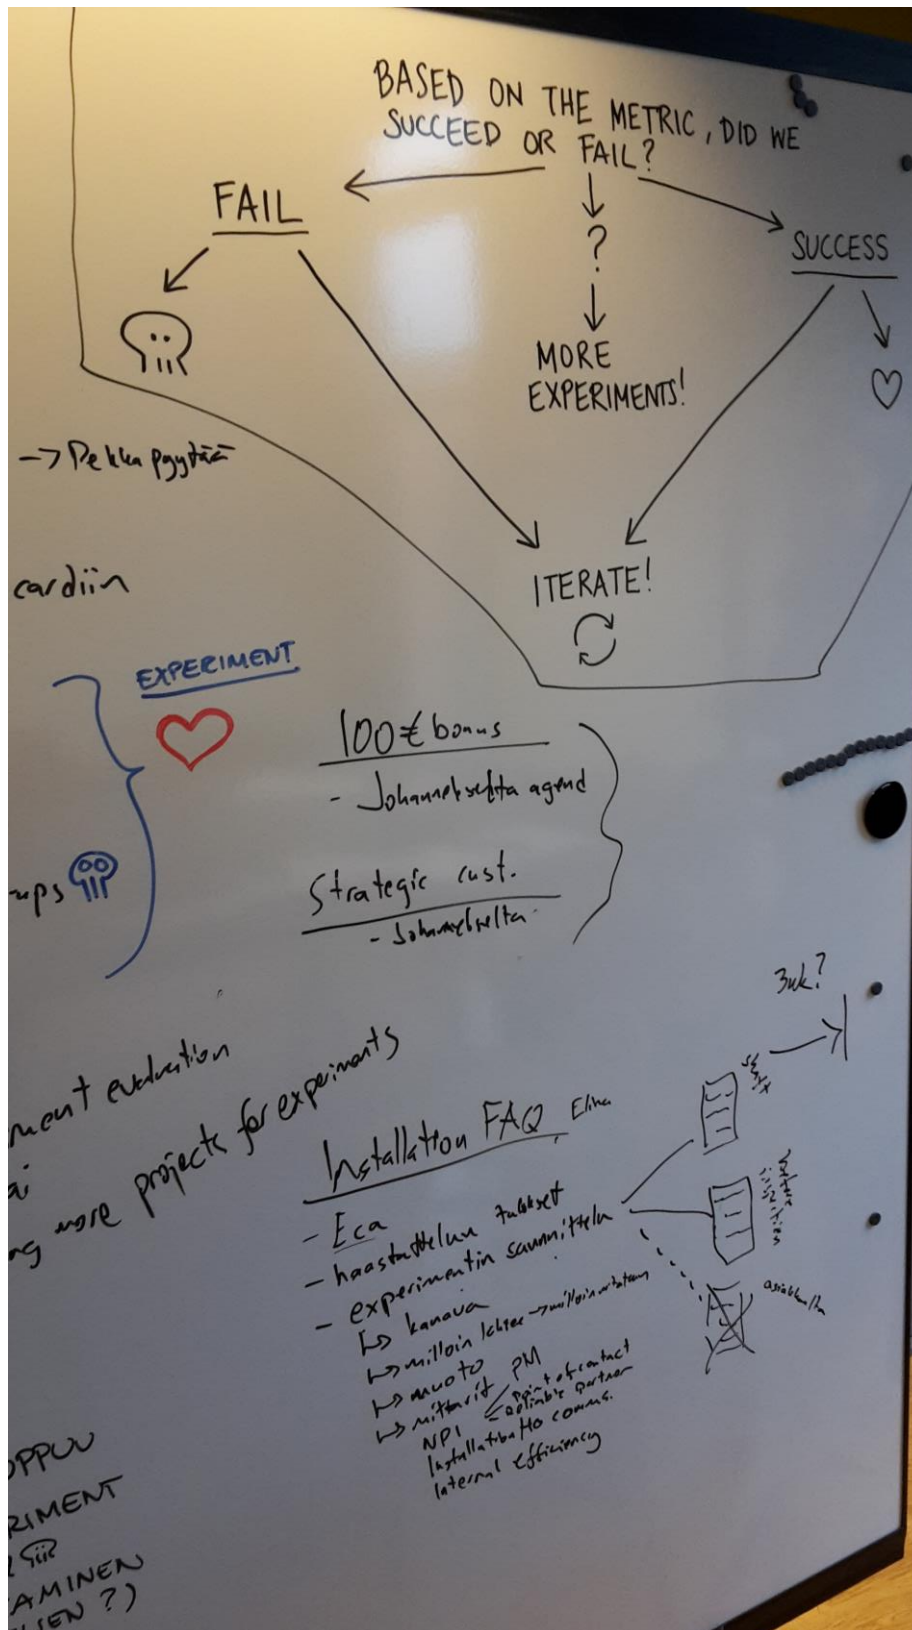 BASED ON THE METRIC, DID WE
SUCCEED OR FAIL?
FAIL
?
SUCCESS
MORE
EXPERIMENTS!
ITERATE!
-> Pekka pyytää
cardiin
EXPERIMENT
100€ bonus
- Johannekselta agend
Strategic cust.
- Johannekselta
ups
3wk?
ment evaluation
ai
ng more projects for experiments
Installation FAQ, Elina
- Eca
- haastattelun tulokset
- experimentin suunnittelu
↳ kanava
↳ milloin lähtee → milloin mitataan
↳ muoto
↳ mittarit PM
NPI point of contact
reliable partner
Installation HO comms.
Internal efficiency
asiakkailta
OPPUU
RIMENT
AMINEN
IEN ?)